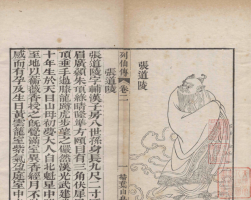 張道陵
列仙傳
卷二
張道陵
張道陵字輔漢子房八世孫身長九尺二寸
眉廣顙朱頂綠睛隆準方頤目有三角伏犀
頂垂手過膝龍蹲虎步望之儼然漢光武建
十年生於天目山母初夢大人自北魁星中
至地以蘅薇香授之既覺滿室異香經月不
感而有孕及生日黃雲籠室紫氣盈庭室中